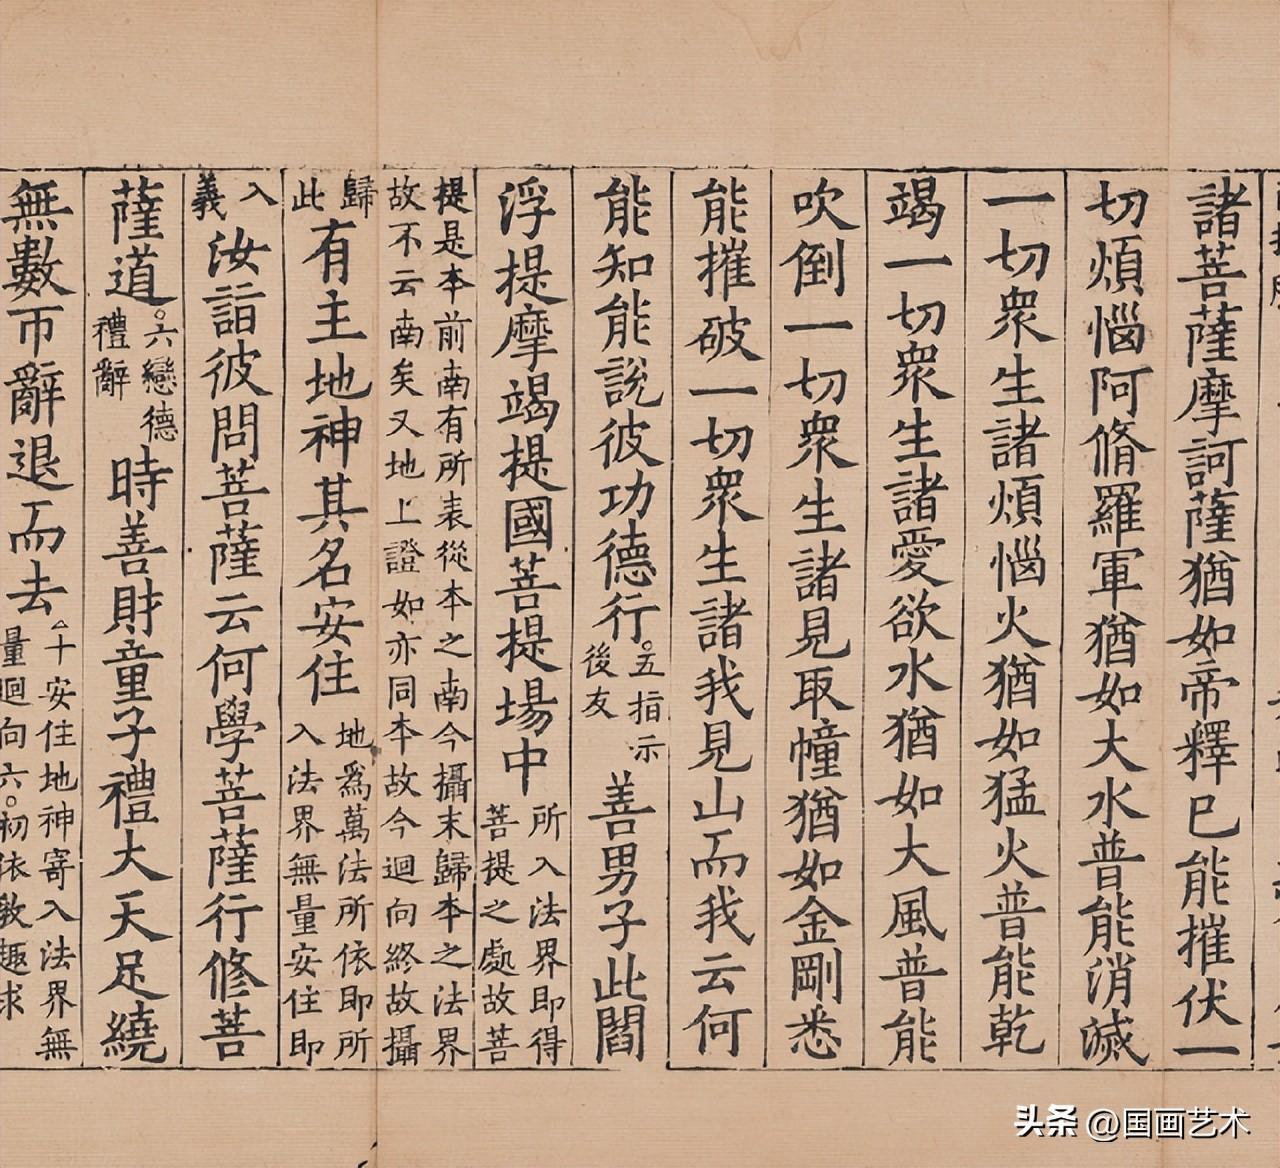 諸菩薩摩訶薩猶如帝釋巳能摧伏一
切煩惱阿脩羅軍猶如大水普能消滅
一切衆生諸煩惱火猶如猛火普能乾
竭一切衆生諸愛欲水猶如大風普能
吹倒一切衆生諸見取幢猶如金剛悉
能摧破一切衆生諸我見山而我云何
能知能說彼功德行。五指示後友善男子此閻
浮提摩竭提國菩提場中所入法界即得菩提之處故菩
提是本前南有所表從本之南今攝末歸本之法界
故不云南矣又地上證如亦同本故今迴向終故攝
歸此有主地神其名安住地爲萬法所依即所入法界無量安住即
入義汝詣彼問菩薩云何學菩薩行修菩
薩道。六戀德禮辭時善財童子禮大天足繞
無數帀辭退而去。十安住地神寄入法界無量迴向六。初依教趣求
头条 @国画艺术